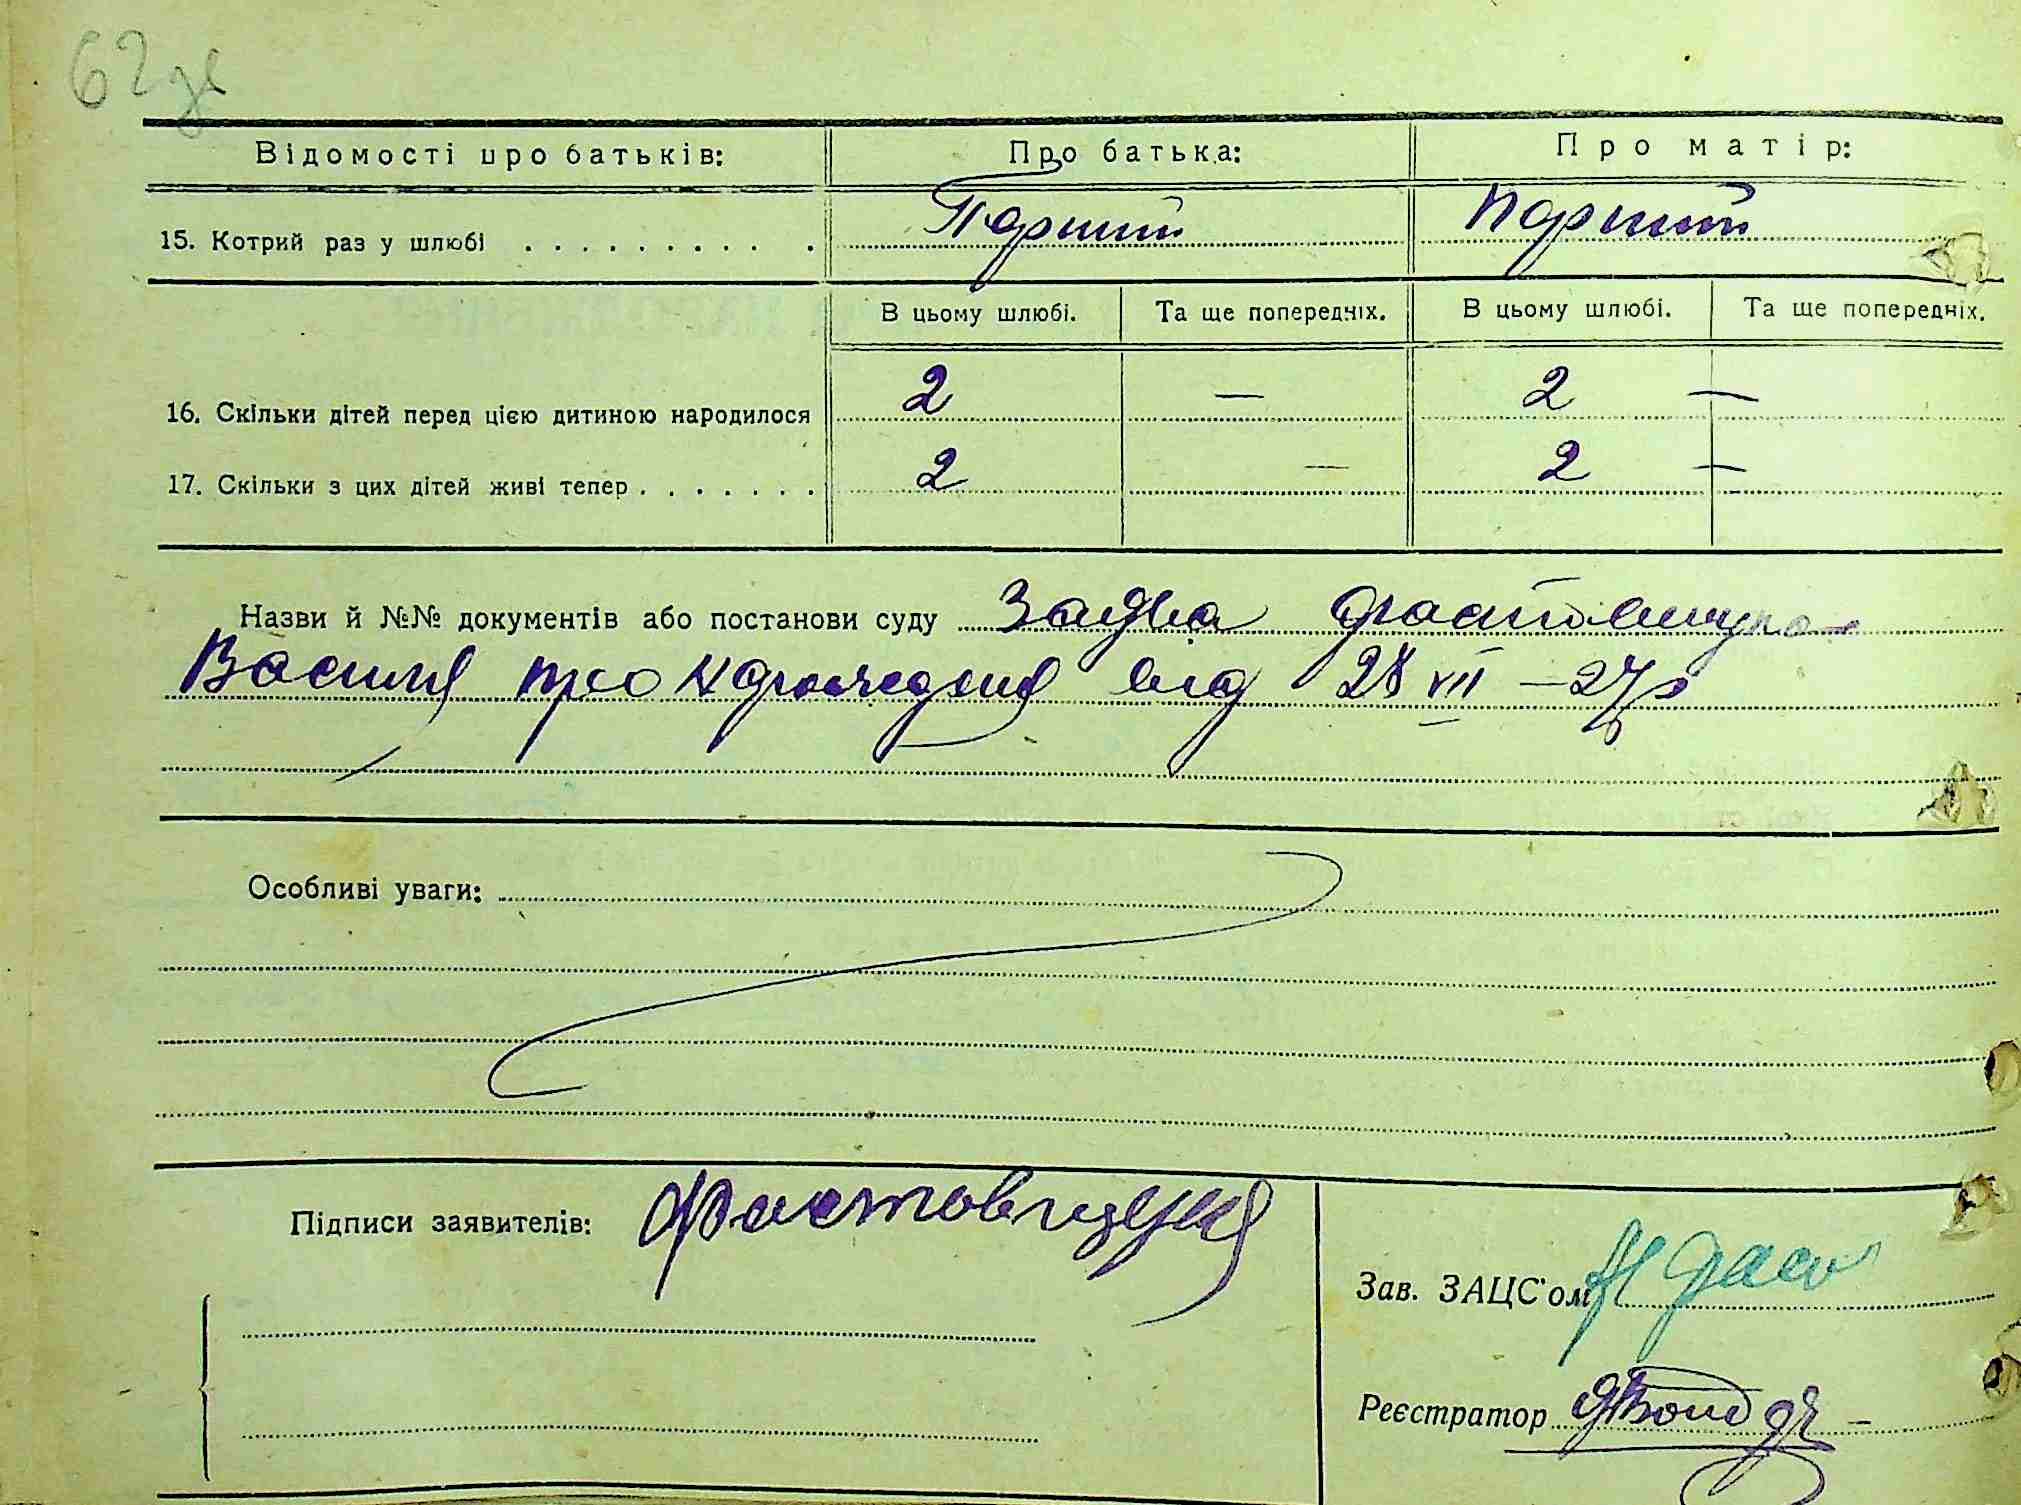 62
Відомості про батьків: Про батька: Про матір:
15. Котрий раз у шлюбі . . . . . . . . . . Перший Перший
В цьому шлюбі. Та ще попередніх. В цьому шлюбі. Та ще попередніх.
16. Скільки дітей перед цією дитиною народилося 2 — 2 —
17. Скільки з цих дітей живі тепер . . . . . . . 2 — 2 —
Назви й №№ документів або постанови суду Заява
Василя про від 28 VII – 27р
Особливі уваги:
Підписи заявителів:
Зав. ЗАЦС'ом
Реєстратор